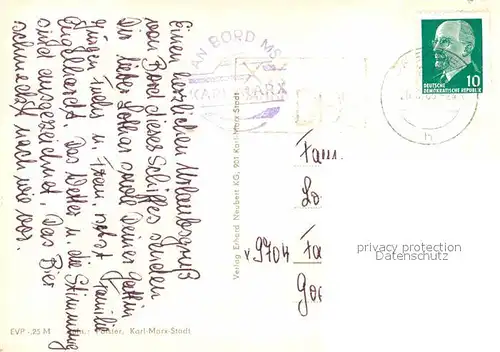 Einen herzlichen Urlaubsgruß
von Bord dieses Schiffes senden
Dir lieber Lothar sowie Deiner Gattin
Jürgen Fuchs u. Frau, nebst Familie
Englhardt. Das Wetter u. die Stimmung
sind ausgezeichnet. Das Bier
schmeckt nach wie vor.
AN BORD MS
KARL MARX
10
DEUTSCHE
DEMOKRATISCHE REPUBLIK
Verlag Erhard Neubert KG, 901 Karl-Marx-Stadt
Fam.
Lo
v 9704 Fa
Goe
privacy protection
Datenschutz
EVP -,25 M
Förster, Karl-Marx-Stadt